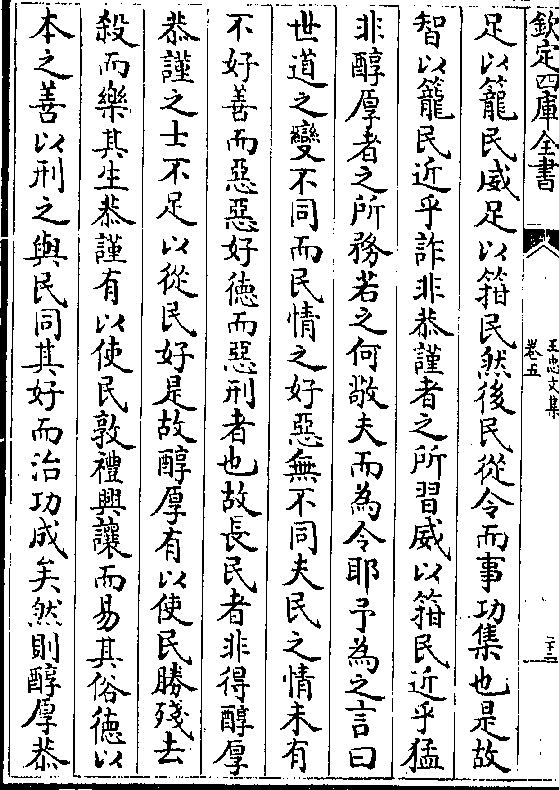 欽定四庫全書
王忠文集
卷五
二十三
足以籠民威足以箝民然後民從令而事功集也是故
智以籠民近乎詐非恭謹者之所習威以箝民近乎猛
非醇厚者之所務若之何敬夫而為令耶予為之言曰
世道之變不同而民情之好惡無不同夫民之情未有
不好善而惡惡好徳而惡刑者也故長民者非得醇厚
恭謹之士不足以從民好是故醇厚有以使民勝殘去
殺而樂其生恭謹有以使民敦禮興讓而易其俗徳以
本之善以刑之與民同其好而治功成矣然則醇厚恭